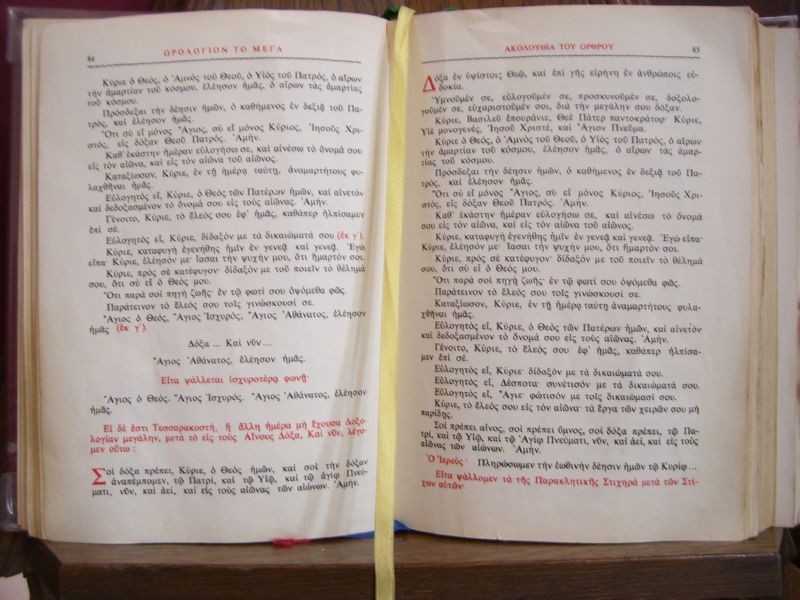 84
ΩΡΟΛΟΓΙΟΝ ΤΟ ΜΕΓΑ
Κύριε ὁ Θεός, ὁ Ἀμνὸς τοῦ Θεοῦ, ὁ Υἱὸς τοῦ Πατρός, ὁ αἴρων
τὴν ἁμαρτίαν τοῦ κόσμου, ἐλέησον ἡμᾶς, ὁ αἴρων τὰς ἁμαρτίας
τοῦ κόσμου.
Πρόσδεξαι τὴν δέησιν ἡμῶν, ὁ καθήμενος ἐν δεξιᾷ τοῦ Πα-
τρός, καὶ ἐλέησον ἡμᾶς.
Ὅτι σὺ εἶ μόνος Ἅγιος, σὺ εἶ μόνος Κύριος, Ἰησοῦς Χρι-
στός, εἰς δόξαν Θεοῦ Πατρός. Ἀμήν.
Καθ' ἑκάστην ἡμέραν εὐλογήσω σε, καὶ αἰνέσω τὸ ὄνομά σου
εἰς τὸν αἰῶνα, καὶ εἰς τὸν αἰῶνα τοῦ αἰῶνος.
Καταξίωσον, Κύριε, ἐν τῇ ἡμέρᾳ ταύτῃ, ἀναμαρτήτους φυ-
λαχθῆναι ἡμᾶς.
Εὐλογητὸς εἶ, Κύριε, ὁ Θεὸς τῶν Πατέρων ἡμῶν, καὶ αἰνετὸν
καὶ δεδοξασμένον τὸ ὄνομά σου εἰς τοὺς αἰῶνας. Ἀμήν.
Γένοιτο, Κύριε, τὸ ἔλεός σου ἐφ' ἡμᾶς, καθάπερ ἠλπίσαμεν
ἐπὶ σέ.
Εὐλογητὸς εἶ, Κύριε, δίδαξόν με τὰ δικαιώματά σου (ἐκ γ΄).
Κύριε, καταφυγὴ ἐγενήθης ἡμῖν ἐν γενεᾷ καὶ γενεᾷ. Ἐγὼ
εἶπα· Κύριε, ἐλέησόν με· ἴασαι τὴν ψυχήν μου, ὅτι ἥμαρτόν σοι.
Κύριε, πρὸς σὲ κατέφυγον· δίδαξόν με τοῦ ποιεῖν τὸ θέλημά
σου, ὅτι σὺ εἶ ὁ Θεός μου.
Ὅτι παρὰ σοὶ πηγὴ ζωῆς· ἐν τῷ φωτί σου ὀψόμεθα φῶς.
Παράτεινον τὸ ἔλεός σου τοῖς γινώσκουσί σε.
Ἅγιος ὁ Θεός, Ἅγιος Ἰσχυρός, Ἅγιος Ἀθάνατος, ἐλέησον
ἡμᾶς (ἐκ γ΄).
Δόξα... Καὶ νῦν...
Ἅγιος Ἀθάνατος, ἐλέησον ἡμᾶς.
Εἶτα ψάλλεται ἰσχυροτέρᾳ φωνῇ·
Ἅγιος ὁ Θεός. Ἅγιος Ἰσχυρός. Ἅγιος Ἀθάνατος, ἐλέησον
ἡμᾶς.
Εἰ δὲ ἔστι Τεσσαρακοστή, ἢ ἄλλη ἡμέρα μὴ ἔχουσα Δοξο-
λογίαν μεγάλην, μετὰ τὸ εἰς τοὺς Αἴνους Δόξα, Καὶ νῦν, λέγο-
μεν οὕτω:
Σοὶ δόξα πρέπει, Κύριε, ὁ Θεὸς ἡμῶν, καὶ σοὶ τὴν δόξαν
ἀναπέμπομεν, τῷ Πατρί, καὶ τῷ Υἱῷ, καὶ τῷ ἁγίῳ Πνεύ-
ματι, νῦν, καὶ ἀεί, καὶ εἰς τοὺς αἰῶνας τῶν αἰώνων. Ἀμήν.
ΑΚΟΛΟΥΘΙΑ ΤΟΥ ΟΡΘΡΟΥ
85
Δόξα ἐν ὑψίστοις Θεῷ, καὶ ἐπὶ γῆς εἰρήνη ἐν ἀνθρώποις εὐ-
δοκία.
Ὑμνοῦμέν σε, εὐλογοῦμέν σε, προσκυνοῦμέν σε, δοξολο-
γοῦμέν σε, εὐχαριστοῦμέν σοι, διὰ τὴν μεγάλην σου δόξαν.
Κύριε, Βασιλεῦ ἐπουράνιε, Θεὲ Πάτερ παντοκράτορ· Κύριε,
Υἱὲ μονογενές, Ἰησοῦ Χριστέ, καὶ Ἅγιον Πνεῦμα.
Κύριε ὁ Θεός, ὁ Ἀμνὸς τοῦ Θεοῦ, ὁ Υἱὸς τοῦ Πατρός, ὁ αἴρων
τὴν ἁμαρτίαν τοῦ κόσμου, ἐλέησον ἡμᾶς, ὁ αἴρων τὰς ἁμαρ-
τίας τοῦ κόσμου.
Πρόσδεξαι τὴν δέησιν ἡμῶν, ὁ καθήμενος ἐν δεξιᾷ τοῦ Πα-
τρός, καὶ ἐλέησον ἡμᾶς.
Ὅτι σὺ εἶ μόνος Ἅγιος, σὺ εἶ μόνος Κύριος, Ἰησοῦς Χρι-
στός, εἰς δόξαν Θεοῦ Πατρός. Ἀμήν.
Καθ' ἑκάστην ἡμέραν εὐλογήσω σε, καὶ αἰνέσω τὸ ὄνομά
σου εἰς τὸν αἰῶνα καὶ εἰς τὸν αἰῶνα τοῦ αἰῶνος.
Κύριε, καταφυγὴ ἐγενήθης ἡμῖν ἐν γενεᾷ καὶ γενεᾷ. Ἐγὼ εἶπα·
Κύριε, ἐλέησόν με· ἴασαι τὴν ψυχήν μου, ὅτι ἥμαρτόν σοι.
Κύριε, πρὸς σὲ κατέφυγον· δίδαξόν με τοῦ ποιεῖν τὸ θέλημά
σου, ὅτι σὺ εἶ ὁ Θεός μου.
Ὅτι παρὰ σοὶ πηγὴ ζωῆς· ἐν τῷ φωτί σου ὀψόμεθα φῶς.
Παράτεινον τὸ ἔλεός σου τοῖς γινώσκουσί σε.
Καταξίωσον, Κύριε, ἐν τῇ ἡμέρᾳ ταύτῃ ἀναμαρτήτους φυλα-
χθῆναι ἡμᾶς.
Εὐλογητὸς εἶ, Κύριε, ὁ Θεὸς τῶν Πατέρων ἡμῶν, καὶ αἰνετὸν
καὶ δεδοξασμένον τὸ ὄνομά σου εἰς τοὺς αἰῶνας. Ἀμήν.
Γένοιτο, Κύριε, τὸ ἔλεός σου ἐφ' ἡμᾶς, καθάπερ ἠλπίσα-
μεν ἐπὶ σέ.
Εὐλογητὸς εἶ, Κύριε· δίδαξόν με τὰ δικαιώματά σου.
Εὐλογητὸς εἶ, Δέσποτα· συνέτισόν με τὰ δικαιώματά σου.
Εὐλογητὸς εἶ, Ἅγιε· φώτισόν με τοῖς δικαιώμασί σου.
Κύριε, τὸ ἔλεός σου εἰς τὸν αἰῶνα· τὰ ἔργα τῶν χειρῶν σου μὴ
παρίδῃς.
Σοὶ πρέπει αἶνος, σοὶ πρέπει ὕμνος, σοὶ δόξα πρέπει, τῷ Πα-
τρί, καὶ τῷ Υἱῷ, καὶ τῷ Ἁγίῳ Πνεύματι, νῦν, καὶ ἀεί, καὶ εἰς τοὺς
αἰῶνας τῶν αἰώνων. Ἀμήν.
Ὁ Ἱερεύς· Πληρώσωμεν τὴν ἑωθινὴν δέησιν ἡμῶν τῷ Κυρίῳ...
Εἶτα ψάλλομεν τὰ τῆς Παρακλητικῆς Στιχηρὰ μετὰ τῶν Στί-
χων αὐτῶν·